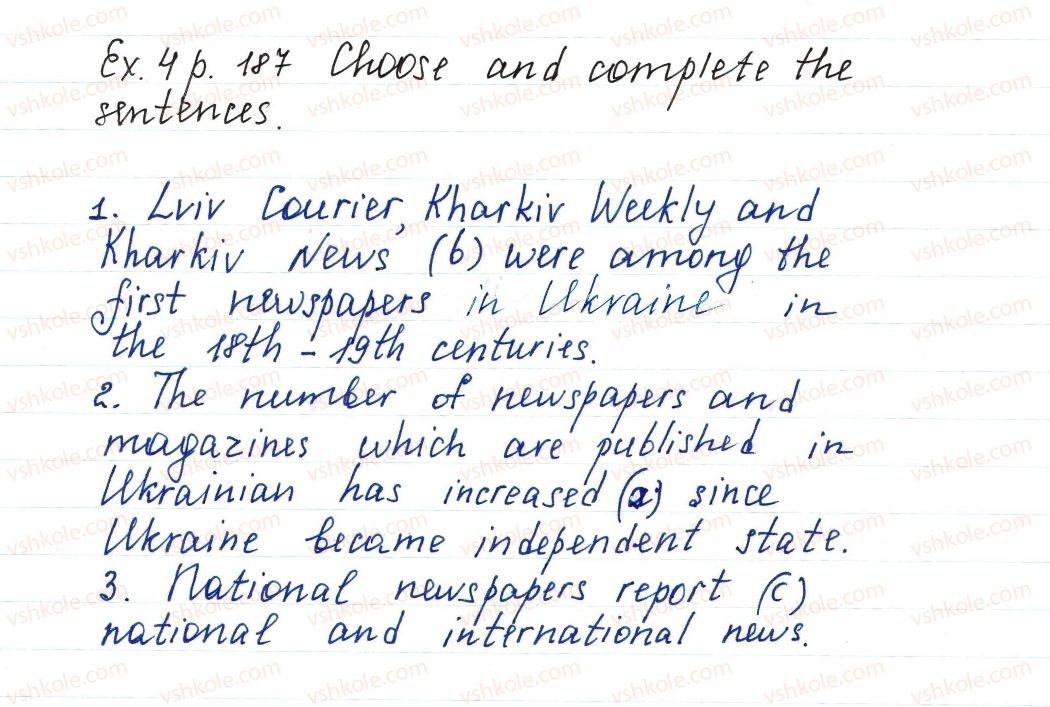 Ex. 4 p. 187 Choose and complete the
sentences.
1. Lviv Courier, Kharkiv Weekly and
Kharkiv News (b) were among the
first newspapers in Ukraine in
the 18th - 19th centuries.
2. The number of newspapers and
magazines which are published in
Ukrainian has increased (a) since
Ukraine became independent state.
3. National newspapers report (c)
national and international news.